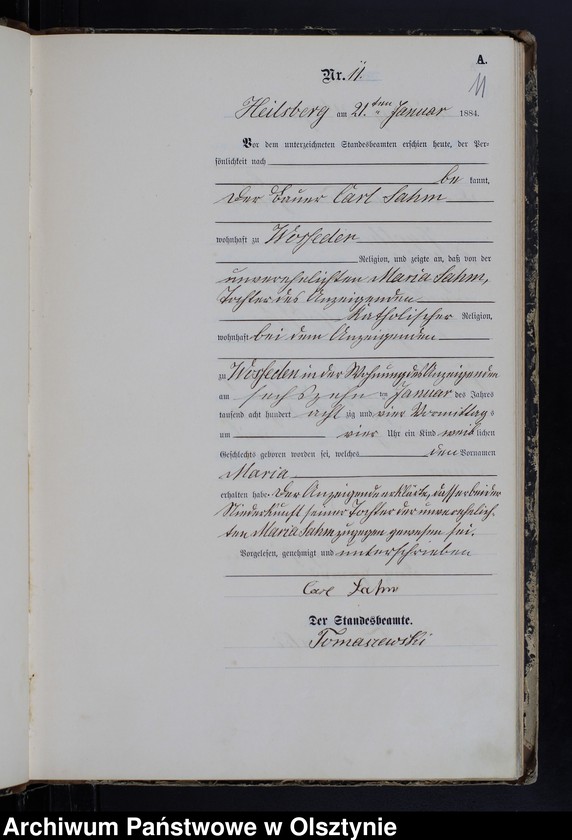 A.
Nr. 11.
11
Heilsberg am 21.ten Januar 1884.
Vor dem unterzeichneten Standesbeamten erschien heute, der Per-
sönlichkeit nach
be kannt,
der Bauer Carl Sahm
wohnhaft zu Wosseden
Religion, und zeigte an, daß von der
unverehelichten Maria Sahm,
Tochter des Anzeigenden
katholischer Religion,
wohnhaft bei dem Anzeigenden
zu Wosseden in der Wohnung des Anzeigenden
am sechszehn ten Januar des Jahres
tausend acht hundert acht zig und vier Vormittags
um vier Uhr ein Kind weib lichen
Geschlechts geboren worden sei, welches den Vornamen
Maria
erhalten habe. Der Anzeigende erklärte, dass er bei der
Niederkunft seiner Tochter der unverehelich-
ten Maria Sahm zugegen gewesen sei.
Vorgelesen, genehmigt und unterschrieben
Carl Sahm
Der Standesbeamte.
Tomaszewski
Archiwum Państwowe w Olsztynie